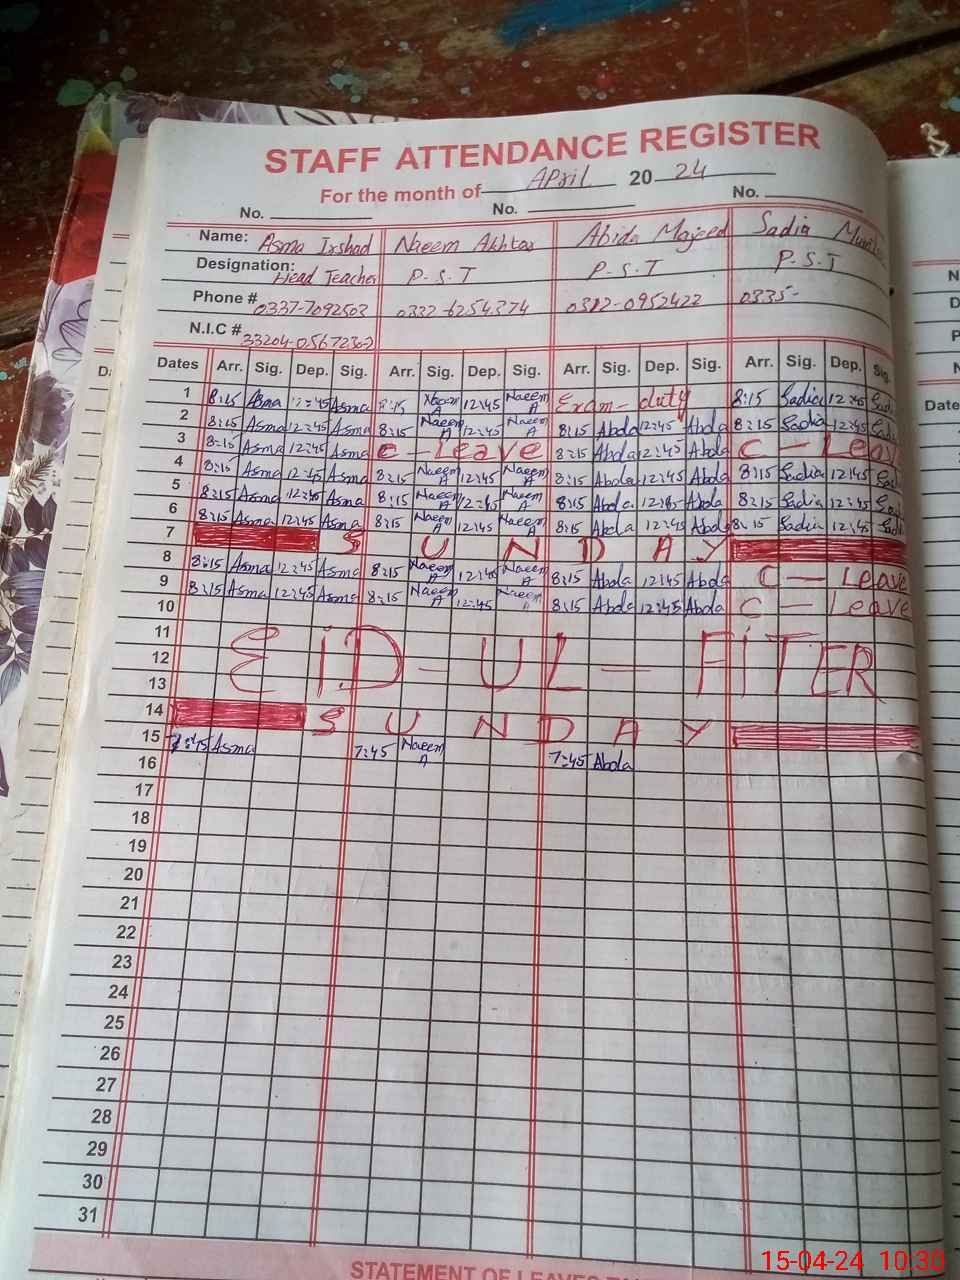 STAFF ATTENDANCE REGISTER
For the month of April 20 24
No. No. No.
Name: Asma Irshad Naeem Akhtar Abida Majeed Sadia
Designation: Head Teacher P.S.T P.S.T P.S.T
Phone # 0337-7092503 0332-6254374 0312-0952422 0335-
N.I.C #
Dates Arr. Sig. Dep. Sig. Arr. Sig. Dep. Sig. Arr. Sig. Dep. Sig. Arr. Sig. Dep. Sig.
1 8:15 Asma 12:45 Asma 8:15 Naeem A 12:45 Naeem A Exam - duty 8:15 Sadia 12:45 Sadia
2 8:15 Asma 12:45 Asma 8:15 Naeem A 12:45 Naeem A 8:15 Abda 12:45 Abda 8:15 Sadia 12:45
3 8:15 Asma 12:45 Asma C - Leave 8:15 Abda 12:45 Abda C - Leav
4 8:15 Asma 12:45 Asma 8:15 Naeem A 12:45 Naeem A 8:15 Abda 12:45 Abda 8:15 Sadia 12:45
5 8:15 Asma 12:45 Asma 8:15 Naeem A 12:45 Naeem A 8:15 Abda 12:45 Abda 8:15 Sadia 12:45
6 8:15 Asma 12:45 Asma 8:15 Naeem A 12:45 Naeem A 8:15 Abda 12:45 Abda 8:15 Sadia 12:45
7 SUNDAY
8 8:15 Asma 12:45 Asma 8:15 Naeem A 12:45 Naeem A 8:15 Abda 12:45 Abda C - Leave
9 8:15 Asma 12:45 Asma 8:15 Naeem A 12:45 Naeem A 8:15 Abda 12:45 Abda C - Leave
10
11
12 EID-UL-FITER
13
14 SUNDAY
15 7:45 Asma 7:45 Naeem A 7:45 Abda
16
17
18
19
20
21
22
23
24
25
26
27
28
29
30
31
STATEMENT OF LEAVES
15-04-24 10:30